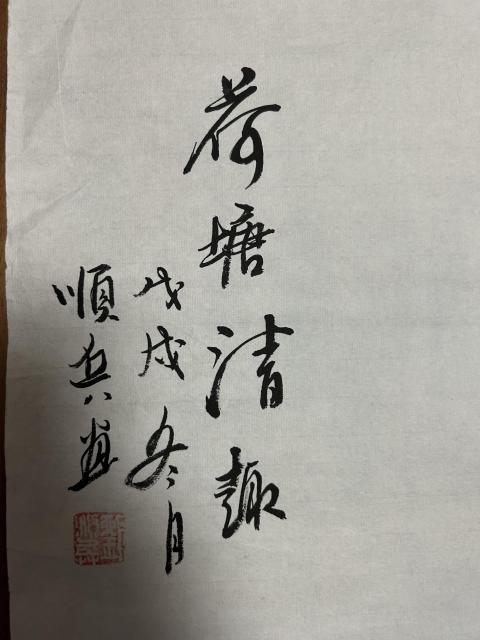 荷塘清趣
戊戌冬月
順兵畫